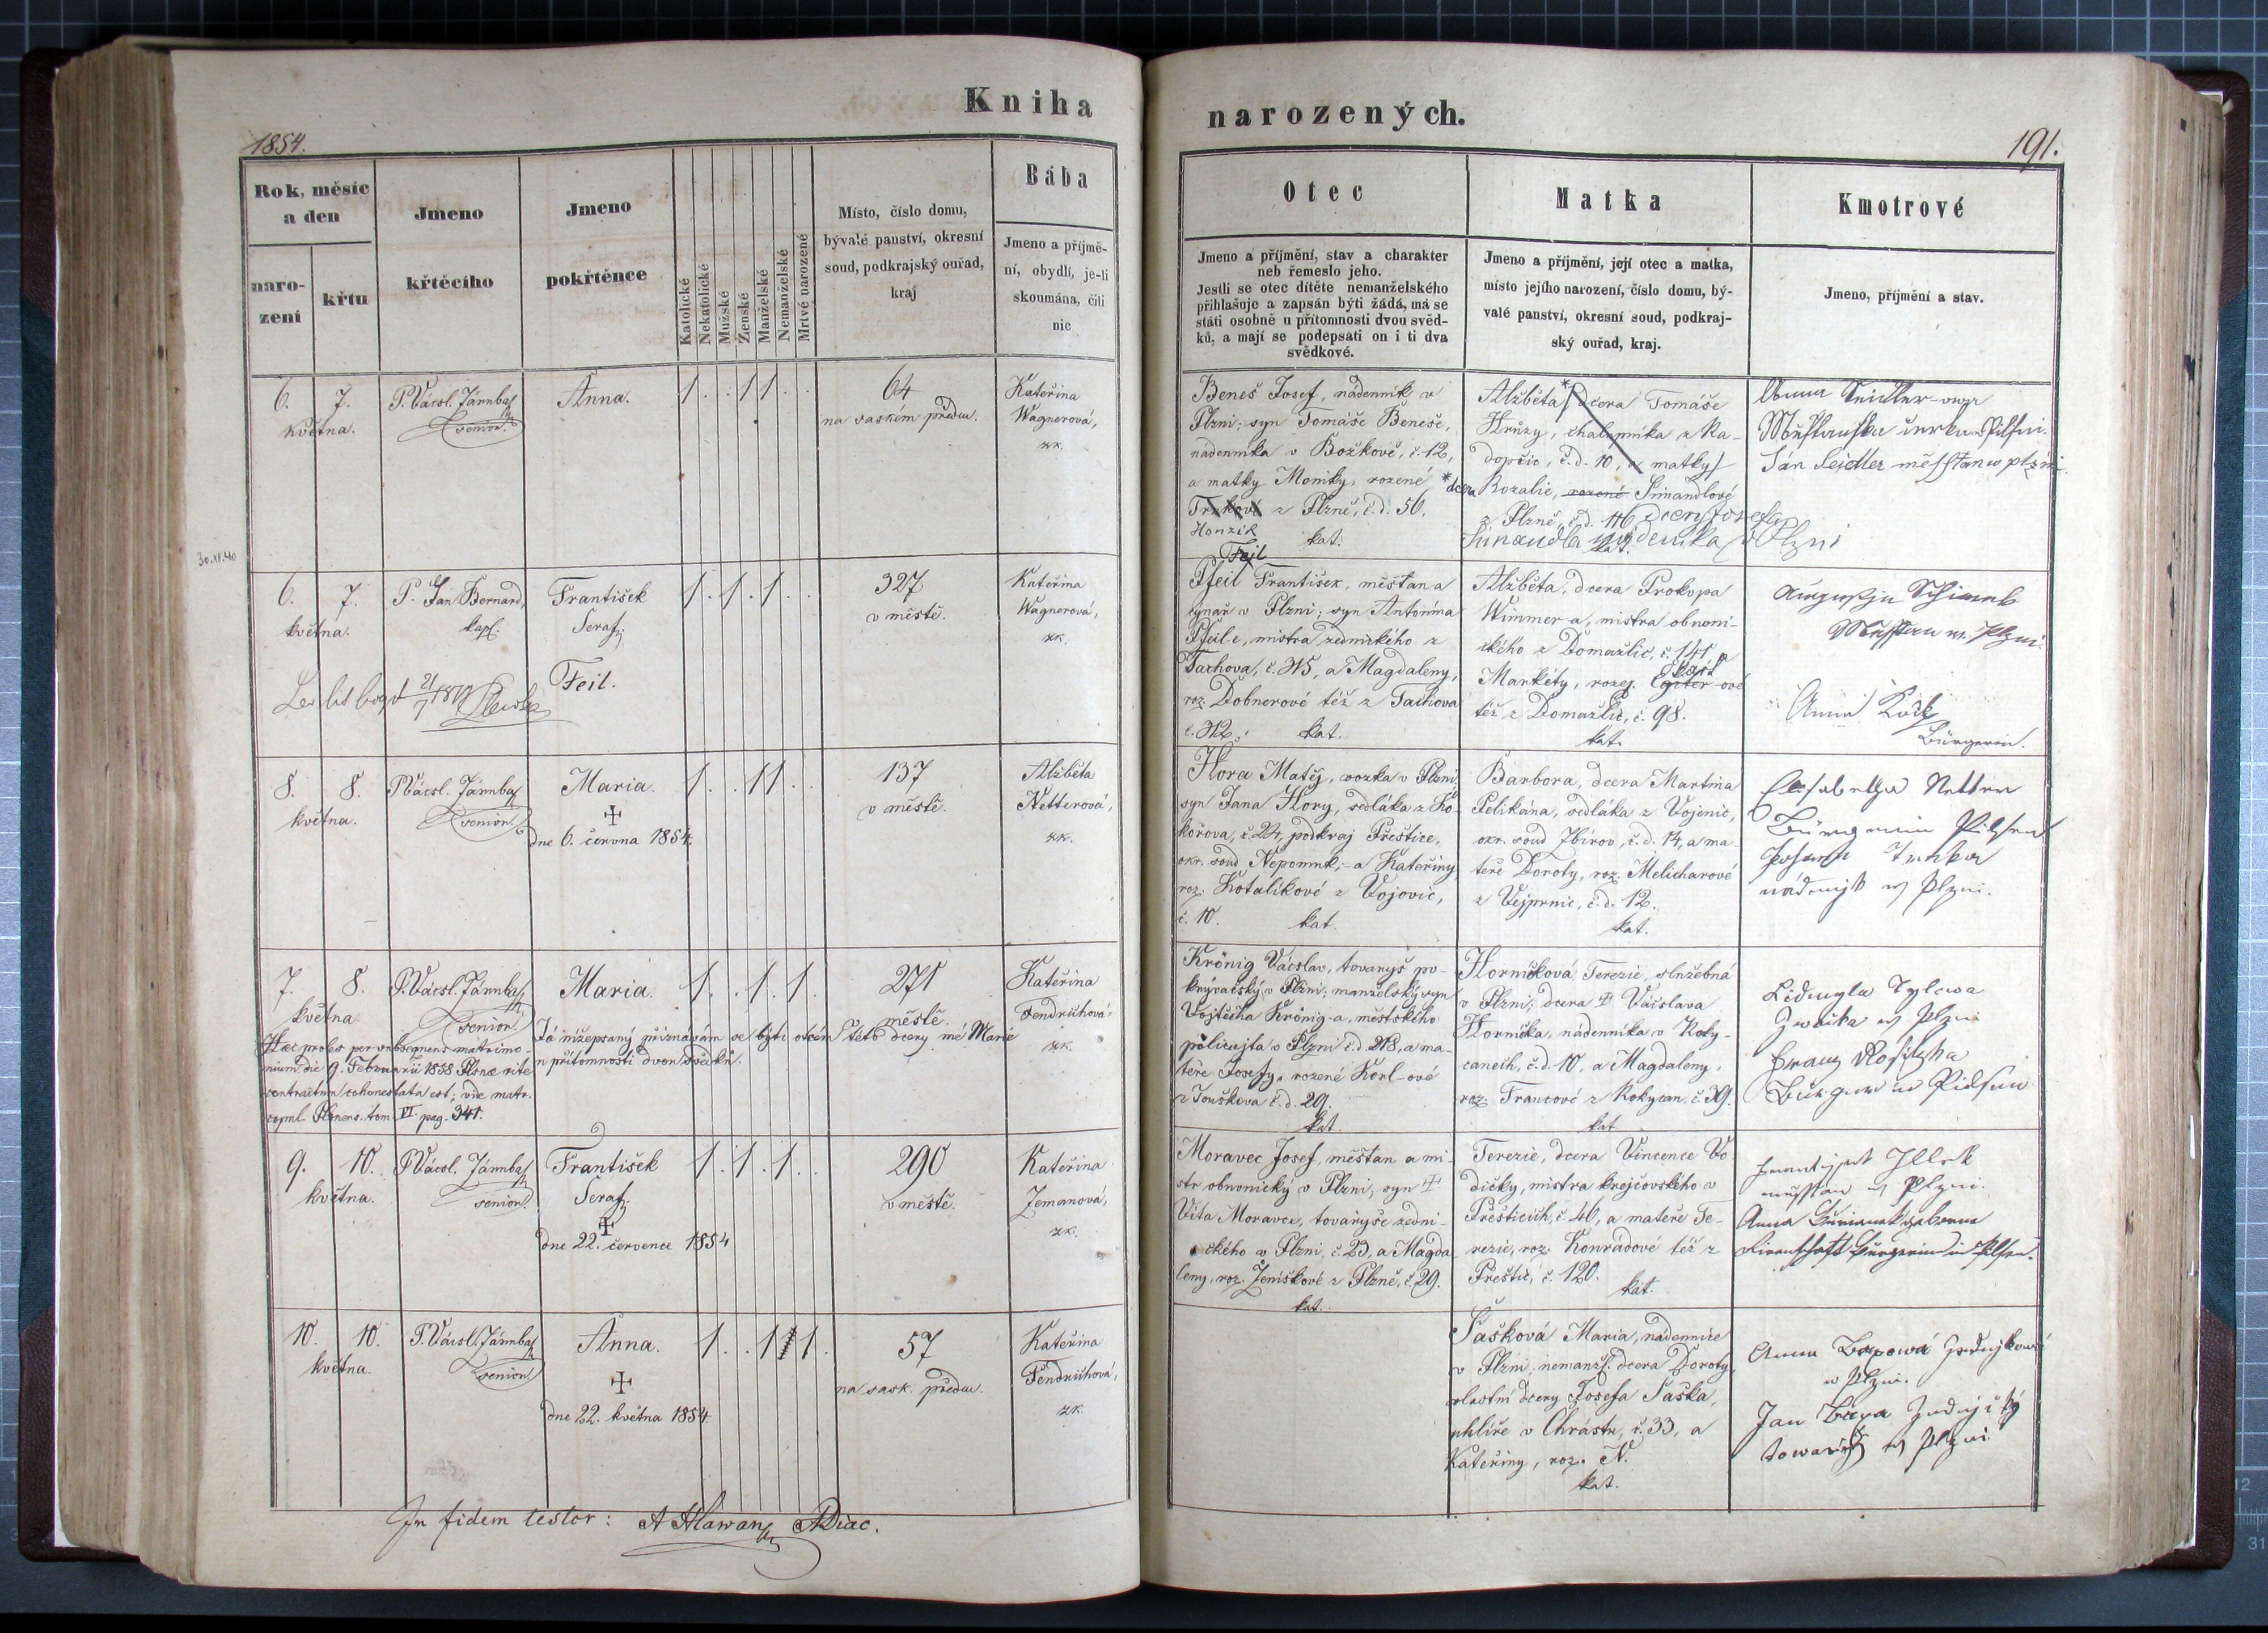 Kniha
narozených.
1854.
191.
Rok, měsíc
a den
naro-
zení
křtu
Jmeno
křtěcího
Jmeno
pokřtěnce
Katolické
Nekatolické
Mužské
Ženské
Manželské
Nemanželské
Mrtvé narozené
Místo, číslo domu,
bývalé panství, okresní
soud, podkrajský ouřad,
kraj
Bába
Jmeno a příjmě-
ní, obydlí, je-li
skoumána, čili
nic
Otec
Jmeno a příjmění, stav a charakter
neb řemeslo jeho.
Jestli se otec dítěte nemanželského
přihlašuje a zapsán býti žádá, má se
státi osobně u přítomnosti dvou svěd-
ků, a mají se podepsati on i ti dva
svědkové.
Matka
Jmeno a příjmění, její otec a matka,
místo jejího narození, číslo domu, bý-
valé panství, okresní soud, podkraj-
ský ouřad, kraj.
Kmotrové
Jmeno, příjmění a stav.
6. 7.
května.
P. Václ.
senior.
Anna.
1. . . 1 1 . .
64
na saském předm.
Kateřina
Wagnerová,
zk.
Beneš Josef, nádenník v
Plzni; syn Tomáše Beneše,
nádenníka v Božkově, č. 12,
a matky Moniky, rozené
z Plzně, č.d. 56.
Honzik
kat.
Alžběta dcera Tomáše
Hrůzy, chalupníka z Ra-
dopčic, č.d. 10, a matky
*dcera Rozalie, rozené Šimandlové
z Plzně, č.d. 116, dcery Josefa
Šimandla nádeníka v Plzni
kat.
Anna Seidler
Jan Seidler městan w plzni
30.XI.40
6. 7.
května.
P. Jan Bernard,
kapl.
František
Seraf.
Feil.
1. 1. 1. . .
327
v městě.
Kateřina
Wagnerová,
zk.
Feil
Pfeil František, měšťan a
v Plzni; syn Antonína
Pfeil-e, mistra zednického z
Tachova, č. 315, a Magdaleny,
roz. Dobnerové též z Tachova
č. 312.
kat.
Alžběta, dcera Prokopa
Wimmer-a, mistra obuvni-
ckého z Domažlic, č. 141, a
Markéty, rozen.
též z Domažlic, č. 98.
kat.
Anna
Bürgerin.
8. 8.
května.
P. Václ.
senior.
Maria.
✝
dne 6. června 1854.
1. . 1 1 . .
137
v městě.
Alžběta
Netterová,
zk.
Hora Matěj, vozka v Plzni,
syn Jana Hory, sedláka z Ko-
kořova, č. 24, podkraj Přeštice,
okr. soud Nepomuk; a Kateřiny,
roz. Kotalíkové z Vojovic,
č. 10. kat.
Barbora, dcera Martina
Pelikána, sedláka z Vojenic,
okr. soud Zbirov, č.d. 14, a ma-
teře Doroty, roz. Melicharové
z Vejprnic, č.d. 12.
kat.
Netter
Bürgerin Pilsen
w Plzni.
7. 8.
května.
P. Václ.
senior.
Maria.
1. . . 1 . 1.
271
v městě.
Kateřina
Fendrichová,
zk.
Já nížepsaný přiznávám se býti otcem této dcery mé Marie
v přítomnosti dvou svědků.
Haec proles per subsequens matrimo-
nium die 9. Februarii 1858 Plsnae rite
contractum cohonestata est; vide matr.
copul. Plsnens. tom. VI. pag. 341.
Krönig Václav, tovaryš po-
kryvačský v Plzni; manželský syn
Vojtěcha Krönig-a, městského
policajta v Plzni č.d. 218, a ma-
teře Josefy, rozené Korl-ové
z Touškova č.d. 29.
kat.
Horničková Terezie, služebná
v Plzni; dcera ✝ Václava
Horníčka, nádenníka v Roky-
canech, č.d. 10, a Magdaleny,
roz. Francové z Rokycan, č. 39.
kat.
w Plzni
Franz
Bürger in Pilsen
9. 10.
května.
P. Václ.
senior.
František
Seraf.
✝
dne 22. července 1854
1. 1. 1. . .
290
v městě.
Kateřina
Zemanová,
zk.
Moravec Josef, měšťan a mi-
str obuvnický v Plzni, syn ✝
Víta Moravce, tovaryše zedni-
ckého v Plzni, č. 23, a Magda-
leny, roz. Ženíškové z Plzně, č. 29.
kat.
Terezie, dcera Vincence Vo-
dičky, mistra krejčovského v
Přešticích, č. 46, a mateře Te-
rezie, roz. Konrádové též z
Přeštic, č. 120.
kat.
w Plzni.
Anna
Bürgerin in Pilsen.
10. 10.
května.
P. Václ.
senior.
Anna.
✝
dne 22. května 1854.
1. . . 1 1 1.
57
na sask. předm.
Kateřina
Fendrichová,
zk.
Šašková Maria, nádennice
v Plzni, nemanž. dcera Doroty,
vlastní dcery Josefa Šaška,
uhlíře v Chrástu, č. 33, a
Kateřiny, roz. N.
kat.
Anna
w Plzni.
Jan
towaryš w Plzni
In fidem testor: A Hlawan ADiac.